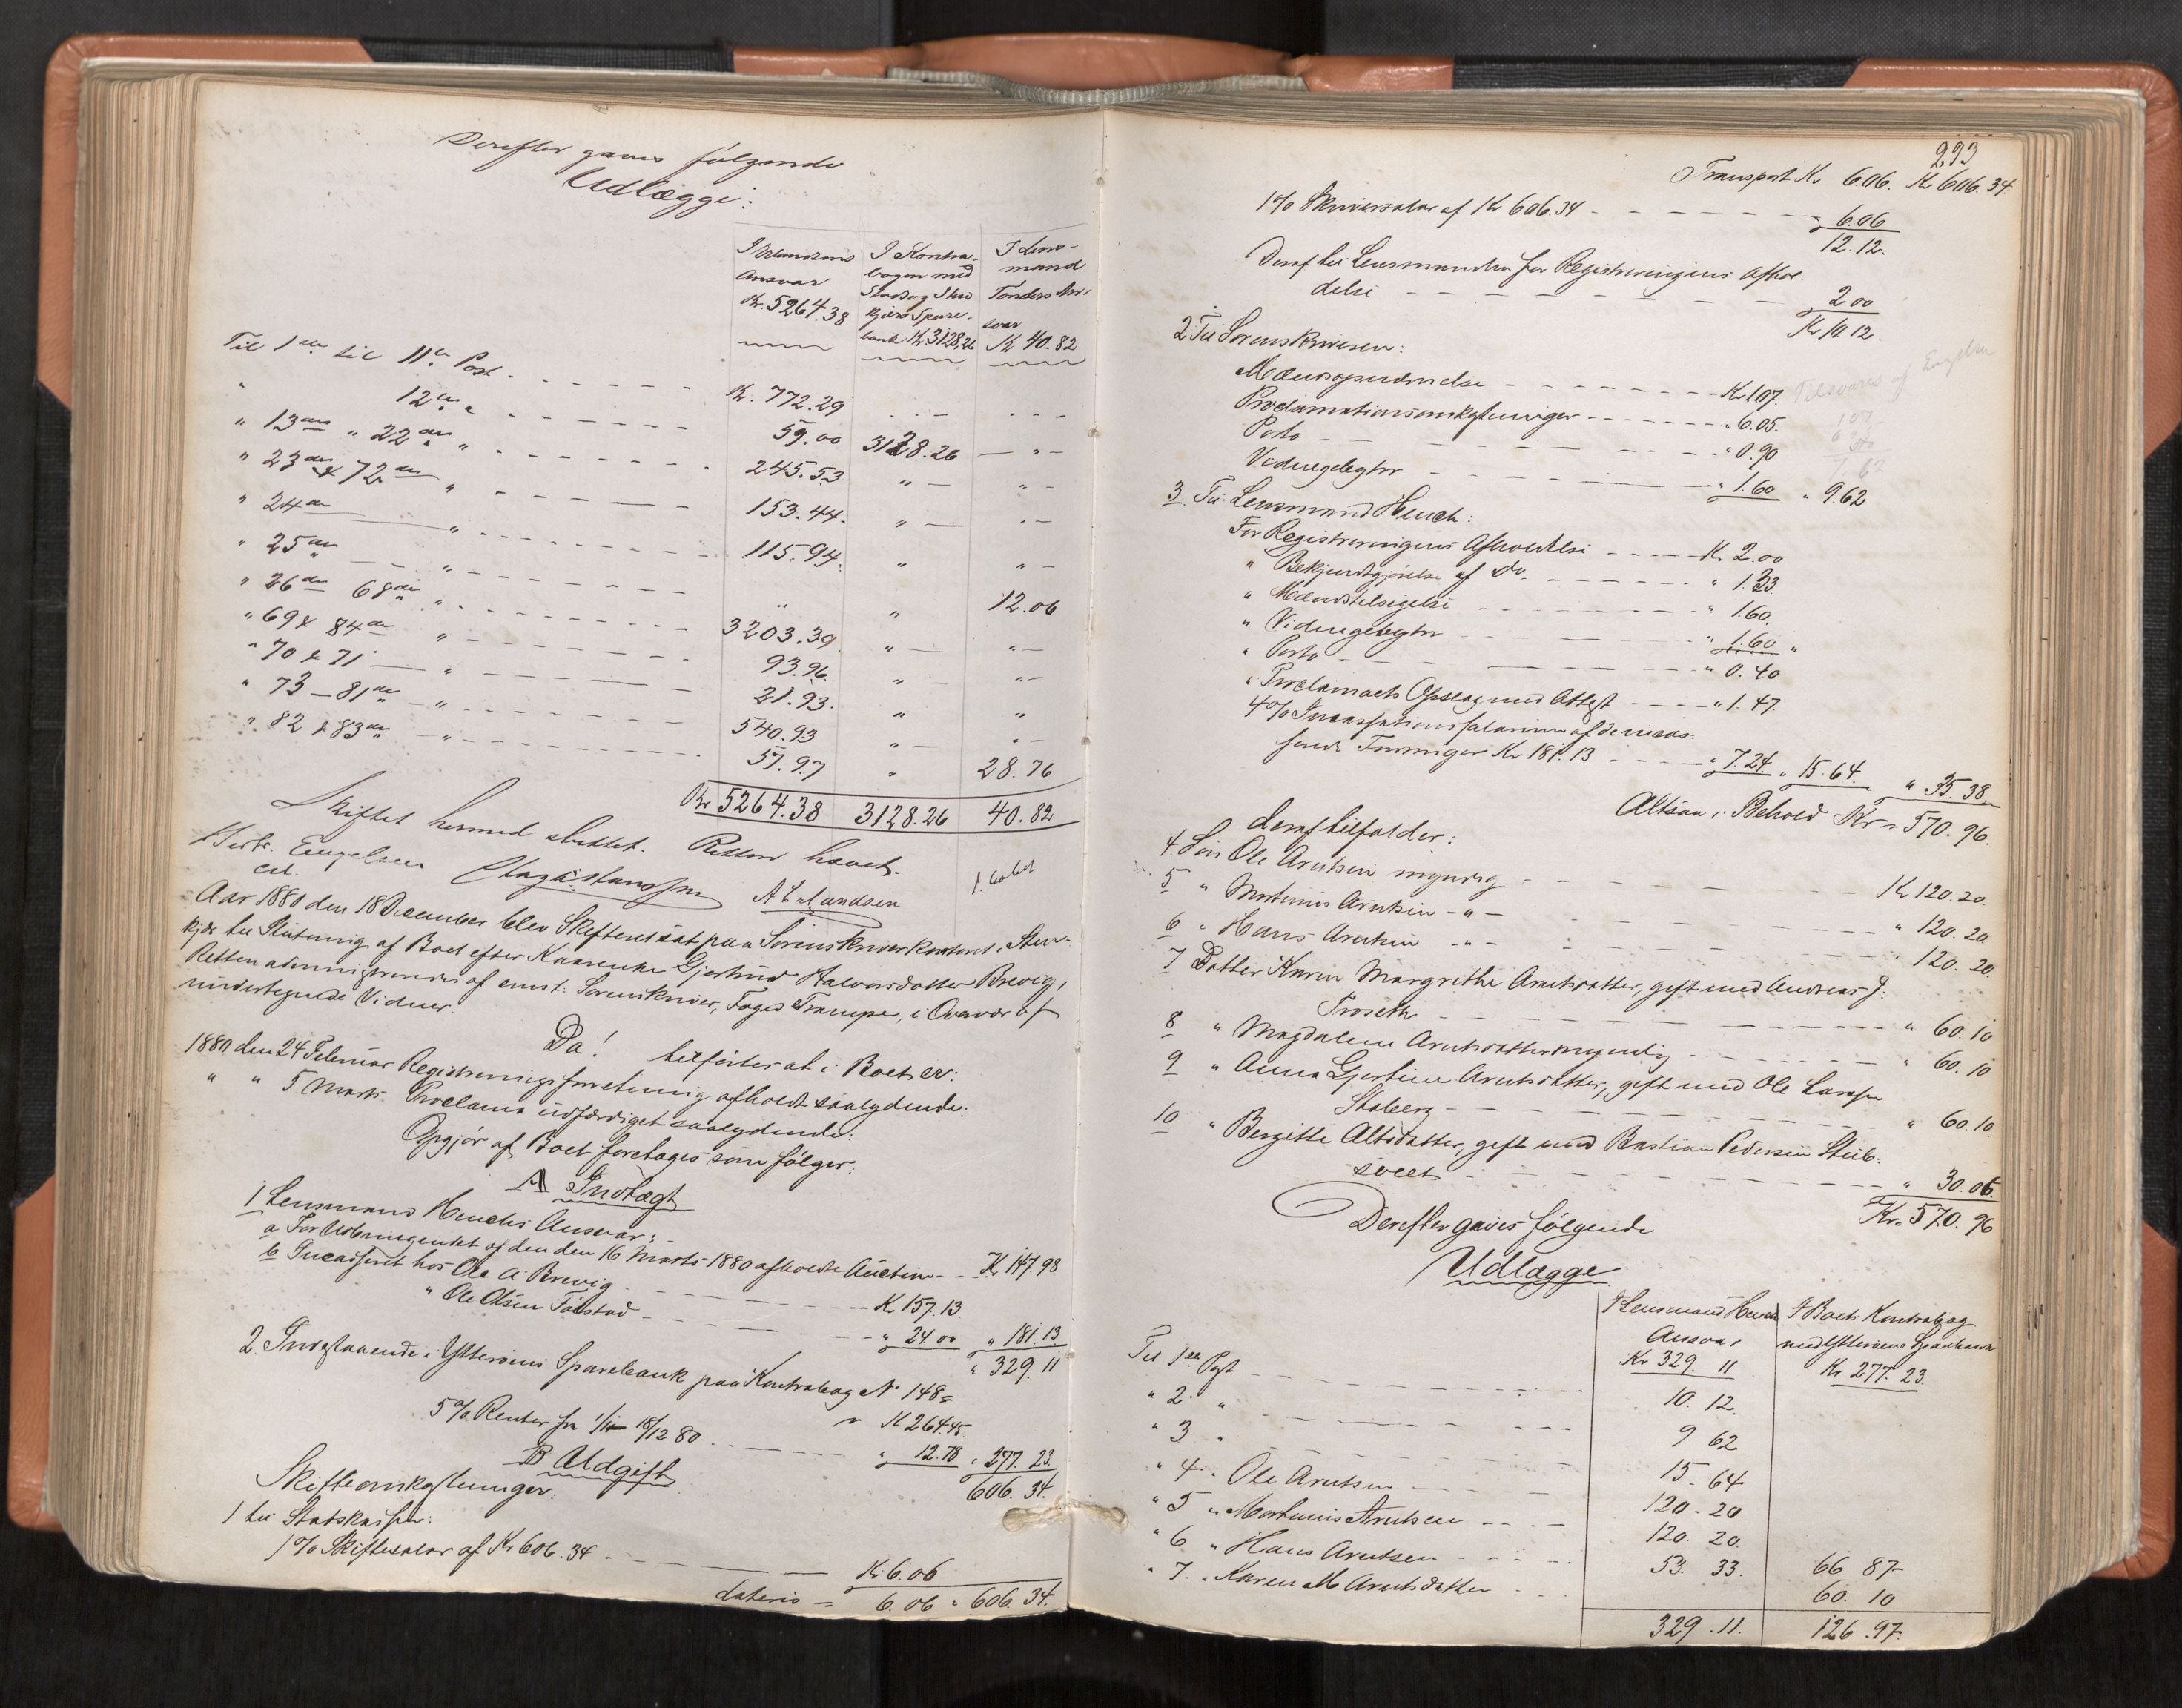 Derefter gaves følgende
Udlægge:
I Erlandsens Ansvar Kr. 5264.38
I Kontrabogen med Stod og Stenkjærs Sparebank Kr 3128,26
I Lensmand Tonders Ansvar Kr 40.82
Til 1ste til 11te Post Kr. 772.29
" 12te " 59.00 3128.26 — " —
" 13de " 22de " 245.53 " — " —
" 23de & 72de " 153.44. " — " —
" 24de — " 115.94. " " —
" 25de — " " " 12.06
" 26de 68de " 3203.39 " — " —
" 69 & 84de " 93.96. " — " —
" 70 & 71 — " 21.93. " "
" 73 — 81de — " 540.93 " — " —
" 82 & 83de — " 57.97 " 28.76
Kr 5264.38 3128.26 40.82
Skiftet hermed sluttet. Retten hævet.
Engelsen A Erlandsen
cst.
Aar 1880 den 18 December blev Skifteret sat paa Sorenskriverkontoret i Sten-
kjær til Slutning af Boet efter Gjertrud Halvorsdatter Brevig,
Retten administreredes af const. Sorenskriver, Foged Trampe, i Overvær af
undertegnede Vidner.
Da! tilførtes at i Boet er:
1880 den 24 Februar Registreringsforretning afholdt saalydende:
" " 5 Marts Proclama udfærdiget saalydende:
Opgjør af Boet foretages som følger:
A Indtægt
1 Lensmand Huuchs Ansvar:
a For Udbringendet af den den 16 Marts 1880 afholdte Auction - - Kr 147.98
b Incasseret hos Ole A Brevig - - - Kr 157.13
" Ole Olsen - - - " 24 00 " 181.13
" 329.11
2. Indestaaende i Ytterøens Sparebank paa Kontrabog No 148 =
Kr 264.45.
5% Renter fra 1/1 - 18/12 80 - - - " 12.78 " 277.23.
606.34.
B Udgift
Skifteomkostninger:
1 til Statskassen:
1% Skiftesalær af Kr 606.34 - - - Kr 6.06
Lateris = 6.06 " 606.34.
293
Transport Kr 6.06. Kr 606.34
1% Skriversalær af Kr 606.34 - - - 6.06
12.12.
Deraf til Lensmanden for Registreringens Afhol-
delse - - - 2 00
Kr 10 12.
2. Til Sorenskriveren:
Mændsopnævnelse - - - Kr 1.07.
Proclamationsomkostninger - - - " 6.05.
Porto - - - " 0.90
Vidnegebyhr - - - " 1.60 " 9.62
3. Til Lensmand Huuch:
For Registreringens Afholdelse - - - Kr. 2.00
" Bekjendtgjørelse af Do - - - " 1.33
" Mændstilsigelse - - - " 1.60.
" Vidnegebyhr - - - " 1.60 "
" Porto - - - " 0.40
" Proclamaets Opslag med Attest - - - " 1.47.
4% Incassationssalarium af de incas-
serede Fordringer Kr 181.13 - - - " 7.24 " 15.64. " 35.38
Altsaa i Behold Kr = 570.96.
deraf tilfalder:
4. Søn Ole Arntsen myndig - - - Kr 120.20.
5 " Martinus Arntsen - " - - - - " 120.20
6 " Hans Arntsen - " - - - - " 120.20
7 Datter Karen Margrethe Arntsdatter, gift med Andreas J.
Troseth - - - " 60.10
8 " Magdalena Arntsdatter myndig - - - " 60.10
9 " Anna Gjertine Arntsdatter, gift med Ole Larsen
Staberg - - - " 60.10.
10 " Bergitte Altsdatter, gift med Bastian Pedersen Steb-
svedt - - - " 30.06
Kr = 570.96
Derefter gaves følgende
Udlægge
I Lensmand Huuchs Ansvar Kr 329.11
I Boets Kontrabog med Ytterøens Sparebank Kr 277.23.
Til 1ste Post - - - 10.12.
" 2. " - - - 9 62
" 3 " - - - 15.64
" 4 " Ole Arntsen - - - 120.20
" 5 " Martinus Arntsen - - - 120.20.
" 6 " Hans Arntsen - - - 53.33. 66 87
" 7 " Karen M Arntsdatter - - - 60.10
329.11. 126.97.